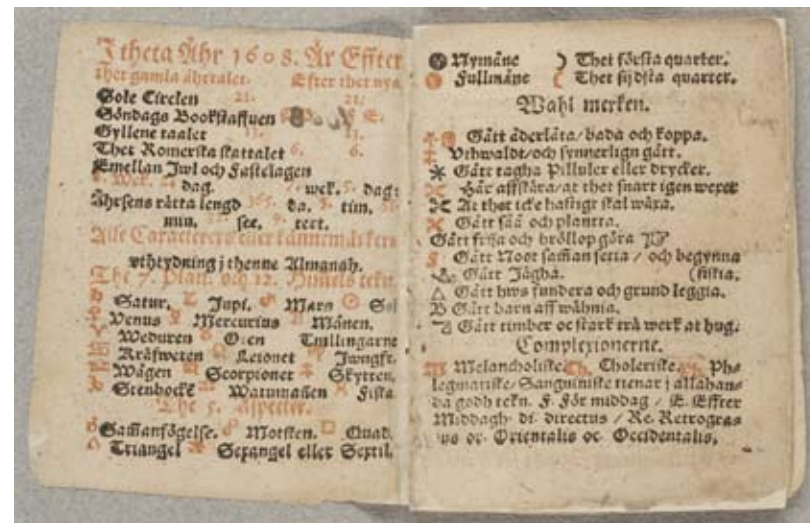 I theta Åhr 1608. Är Effter
thet gamla åhrtalet. Efter thet nya
Sole Circlen 21. 21.
Söndags Bookstaffuen E.
Gyllene taalet 13. 13.
Thet Romerska skattalet 6. 6.
Emellan Jwl och Fastelagen
dag. wek. 5. dag:
Åhrsens rätta lengd 365. da. 5. tim.
min. sec. tert.
Alle Caracterers eller kännemärkers
vthtydning j thenne Almanah.
The 7. Plan. och 12. Himels tekn.
Satur. Jupi. Mars Sol
Venus Mercurius Månen.
Weduren Oxen Twillingarne
Kräfweten Leionet Jwngfr.
Wågen Scorpionet Skytten.
Stenbocke Watumañen Fiska
The 5. Aspecter.
Samanfögelse. Motsken. Quad.
Triangel Sexangel eller Sextil.
Nymåne Thet första quarter.
Fullmåne Thet sijdsta quarter.
Wahl merken.
Gått åderlåta/ bada och koppa.
Vthwaldt/och synnerlign gått.
Gått tagha Pilluler eller drycker.
Här affskära/ at thet snart igen wexer
At thet icke hastigt skal wäxa.
Gått såå och plantta.
Gått frija och bröllop göra
Gått Noot saman setta / och begynna
Gått Jägha. (fiskia.
Gått hws fundera och grund leggia.
Gått barn aff wähnia.
Gått timber oc stark trä werk at hug.
Complexionerne.
Melancholiske. Choleriske. Phs
legmatiske/ Sanguiniske tienar j allahans
da godh tekn. F. För middag / E. Effter
Middagh. di. directus / Re. Retrogras
us or. Orientalis oc. Occidentalis.